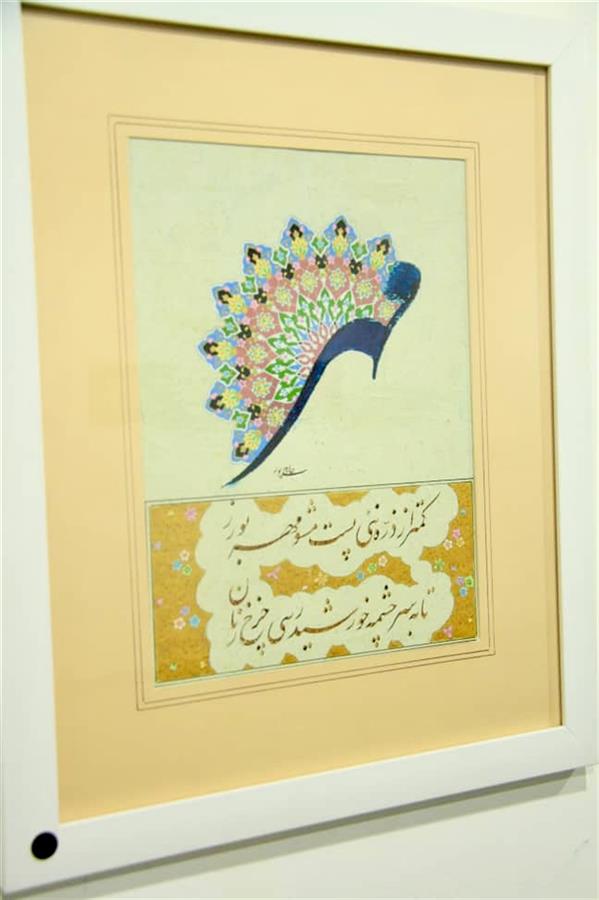 کمتر از ذره نئی پست مشو مهر بورز
تا به سرچشمه خورشید رسی چرخ زنان